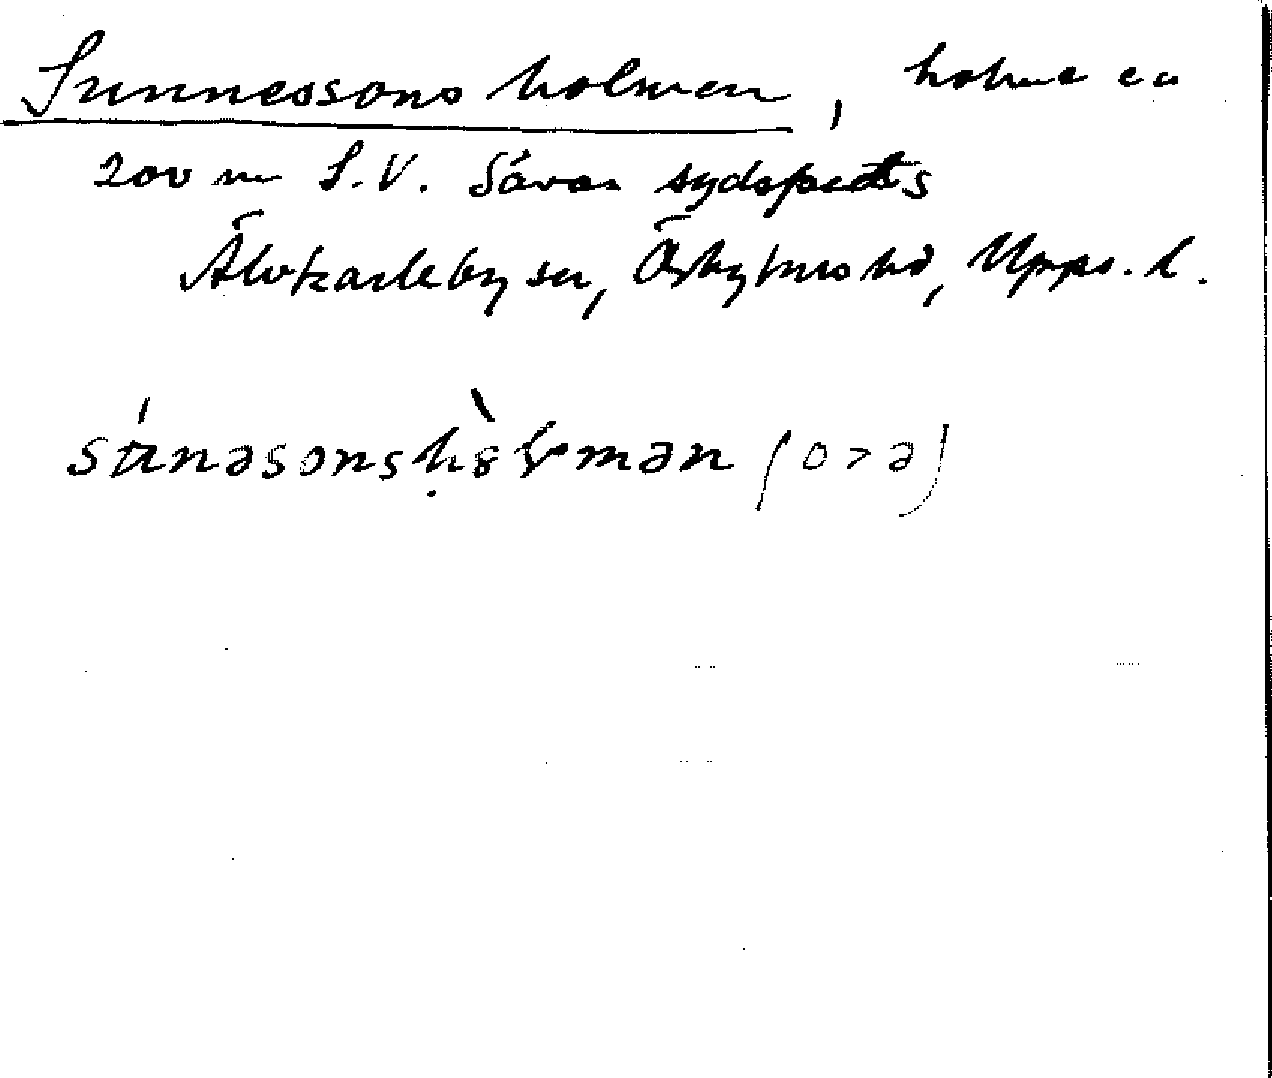 Sunnessons holmen, holme ca
200 m S.V. Såvar sydspets
Älvkarleby sn, Örbyhus hd, Upps. l.
sᵾnəsonshòlmən (o > ə)